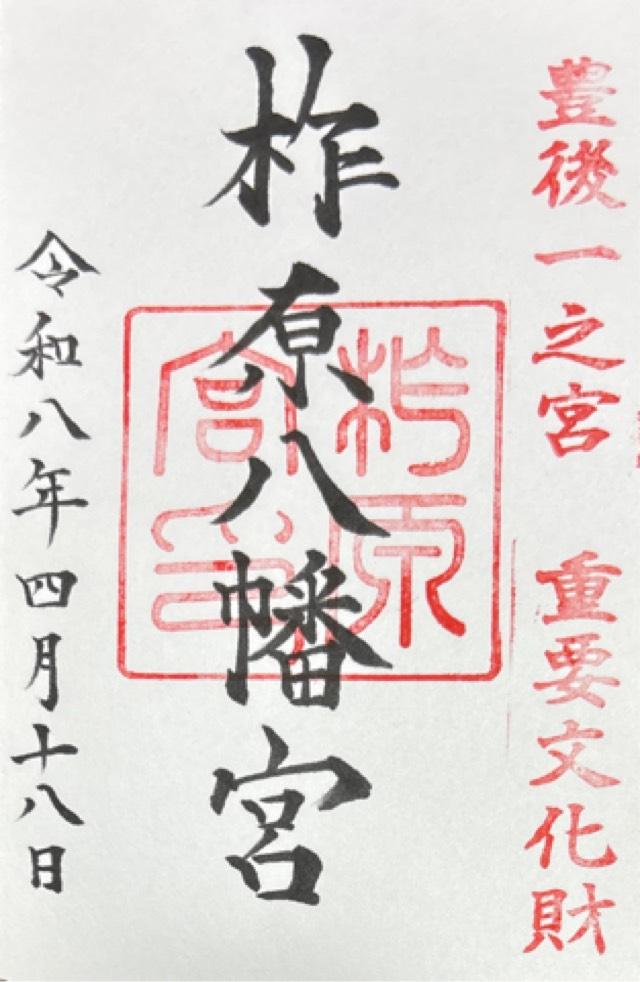 豊後一之宮 重要文化財
柞原八幡宮
柞原
宮印
令和八年四月十八日